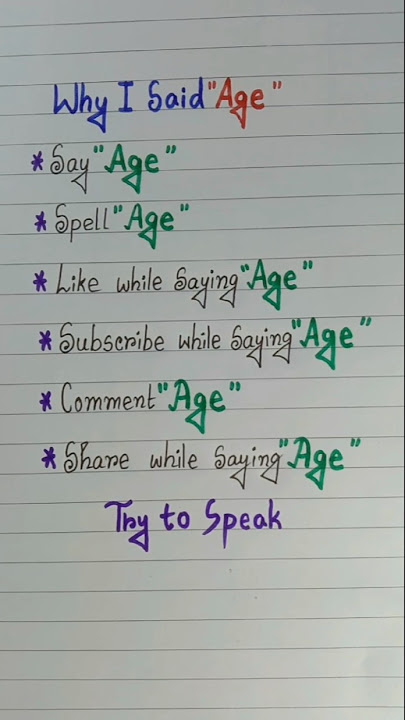 Why I Said "Age"
* Say "Age"
* Spell "Age"
* Like while saying "Age"
* Subscribe while saying "Age"
* Comment "Age"
* Share while saying "Age"
Try to Speak